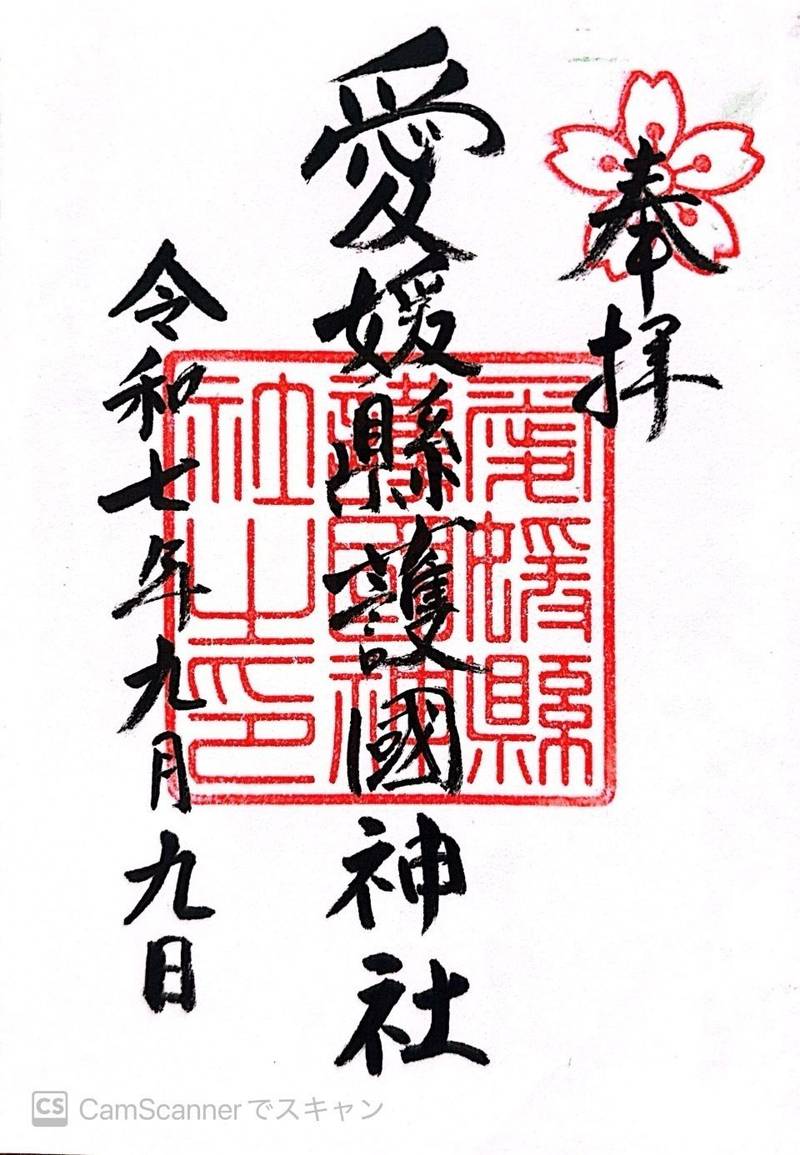 奉拝
愛媛縣護國神社
愛媛縣
護國神
社之印
令和七年九月九日
CS CamScanner でスキャン